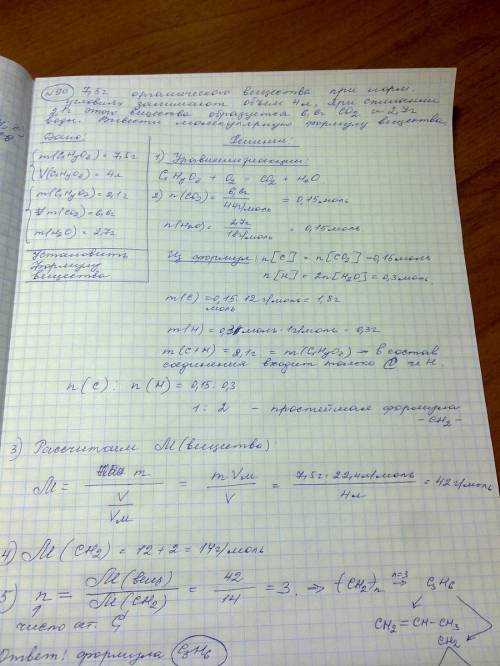 №90 7,5г органического вещества при норм.
условиях занимают объем 4л, при сжигании
2,1г этого вещества образуется 6,6г CO2 и 2,7г
воды. Вывести молекулярную формулу вещества
Дано:
m(CxHyOz) = 7,5г
V(CxHyOz) = 4л
m(CxHyOz) = 2,1г
m(CO2) = 6,6г
m(H2O) = 2,7г
Установить
формулу
вещества
Решение:
1) Уравнение реакции:
CxHyOz + O2 = CO2 + H2O
2) n(CO2) = 6,6г / 44г/моль = 0,15моль
n(H2O) = 2,7г / 18г/моль = 0,15моль
Из формул: n[C] = n[CO2] = 0,15моль
n[H] = 2n[H2O] = 0,3моль
m(C) = 0,15 · 12г/моль = 1,8г
моль
m(H) = 0,3 моль · 1г/моль = 0,3г
m(C+H) = 2,1г = m(CxHyOz) → в состав
соединения входит только C и H.
n(C) : n(H) = 0,15 : 0,3
1 : 2 – простейшая формула
-CH2-
3) Рассчитаем M(вещества)
M = m / (V / VM) = m VM / V = 7,5г · 22,4л/моль / 4л = 42г/моль
4) M(CH2) = 12 + 2 = 14г/моль
5) n = M(вещ) / M(CH2) = 42 / 14 = 3. ⇒ (CH2)n n=3 → C3H6
число ат. C
CH2=CH-CH3
CH2
Ответ: формула C3H6